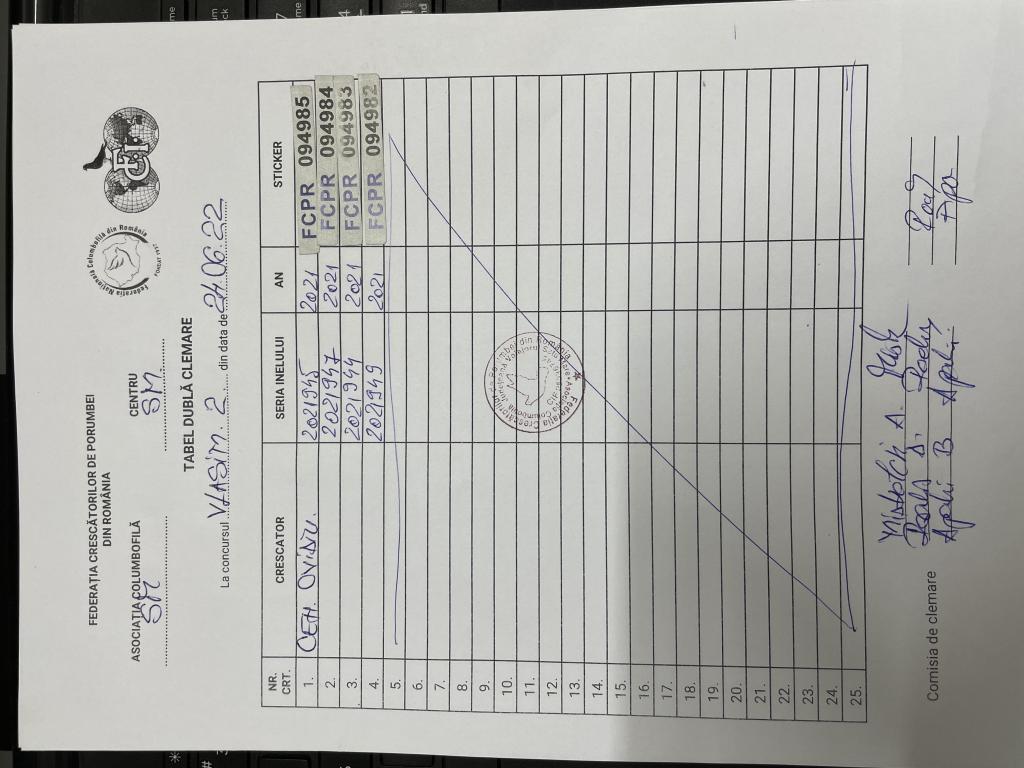 FEDERAȚIA CRESCĂTORILOR DE PORUMBEI
DIN ROMÂNIA
Federația Națională Columbofilă din România
FCI
ASOCIAȚIA COLUMBOFILĂ
SM
CENTRU
SM.
TABEL DUBLĂ CLEMARE
La concursul VLASIM. 2 din data de 24.06.22
NR. CRT. CRESCATOR SERIA INELULUI AN STICKER
1. CEH. OVIDIU. 2021945 2021 FCPR 094985
2. 2021947 2021 FCPR 094984
3. 2021944 2021 FCPR 094983
4. 2021949 2021 FCPR 094982
5.
6.
7.
8.
9.
10.
11.
12.
13.
14.
15.
16.
17.
18.
19.
20.
21.
22.
23.
24.
25.
Federația Crescătorilor de Porumbei din România
Comisia de clemare
A.
B